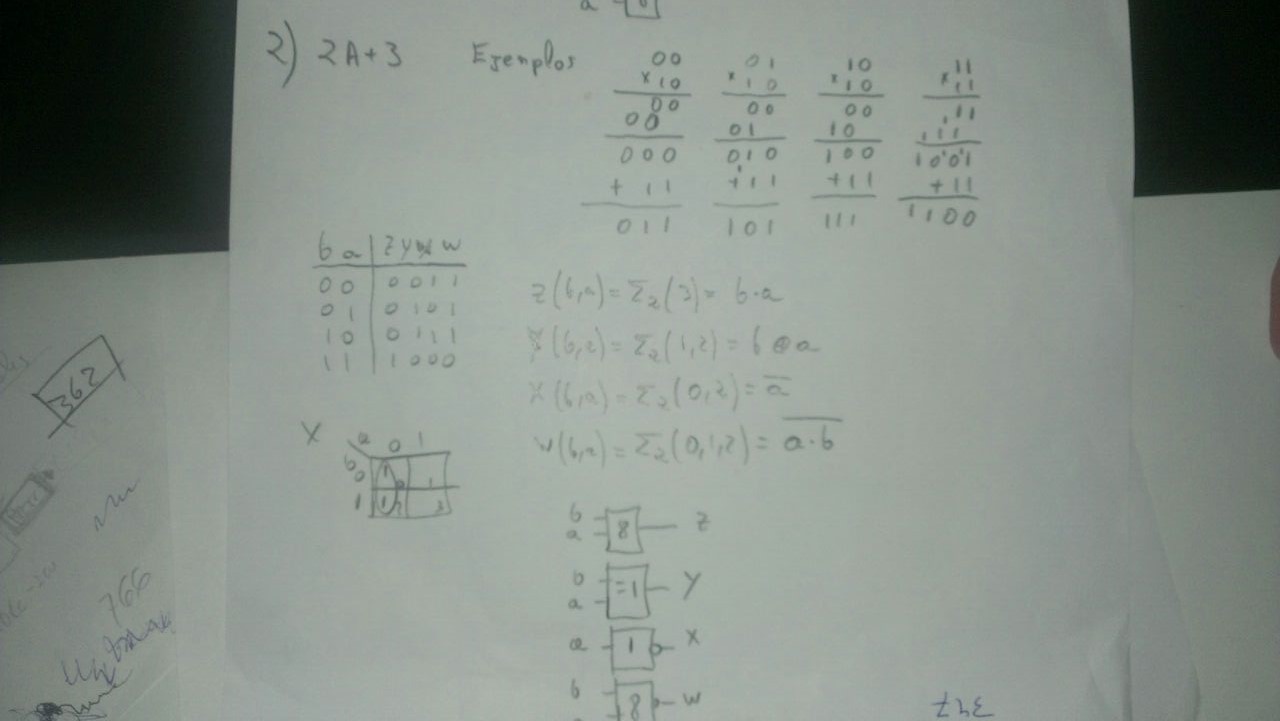 a
2) 2A+3 Ejemplos
00 01 10 11
x10 x10 x10 x11
00 00 00 11
00 01 10 11
000 010 100 1001
+11 +11 +11 +11
011 101 111 1100
b a | z y x w
00 | 0011
01 | 0101
10 | 0111
11 | 1000
z(b,a) = Σ2(3) = b·a
y(b,a) = Σ2(1,2) = b⊕a
x(b,a) = Σ2(0,2) = a̅
w(b,a) = Σ2(0,1,2) = \overline{a·b}
X
a 0 1
b 0 1 0 1
1 1 2 3
b a & z
b a =1 y
a 1 x
b & w
362
766
347